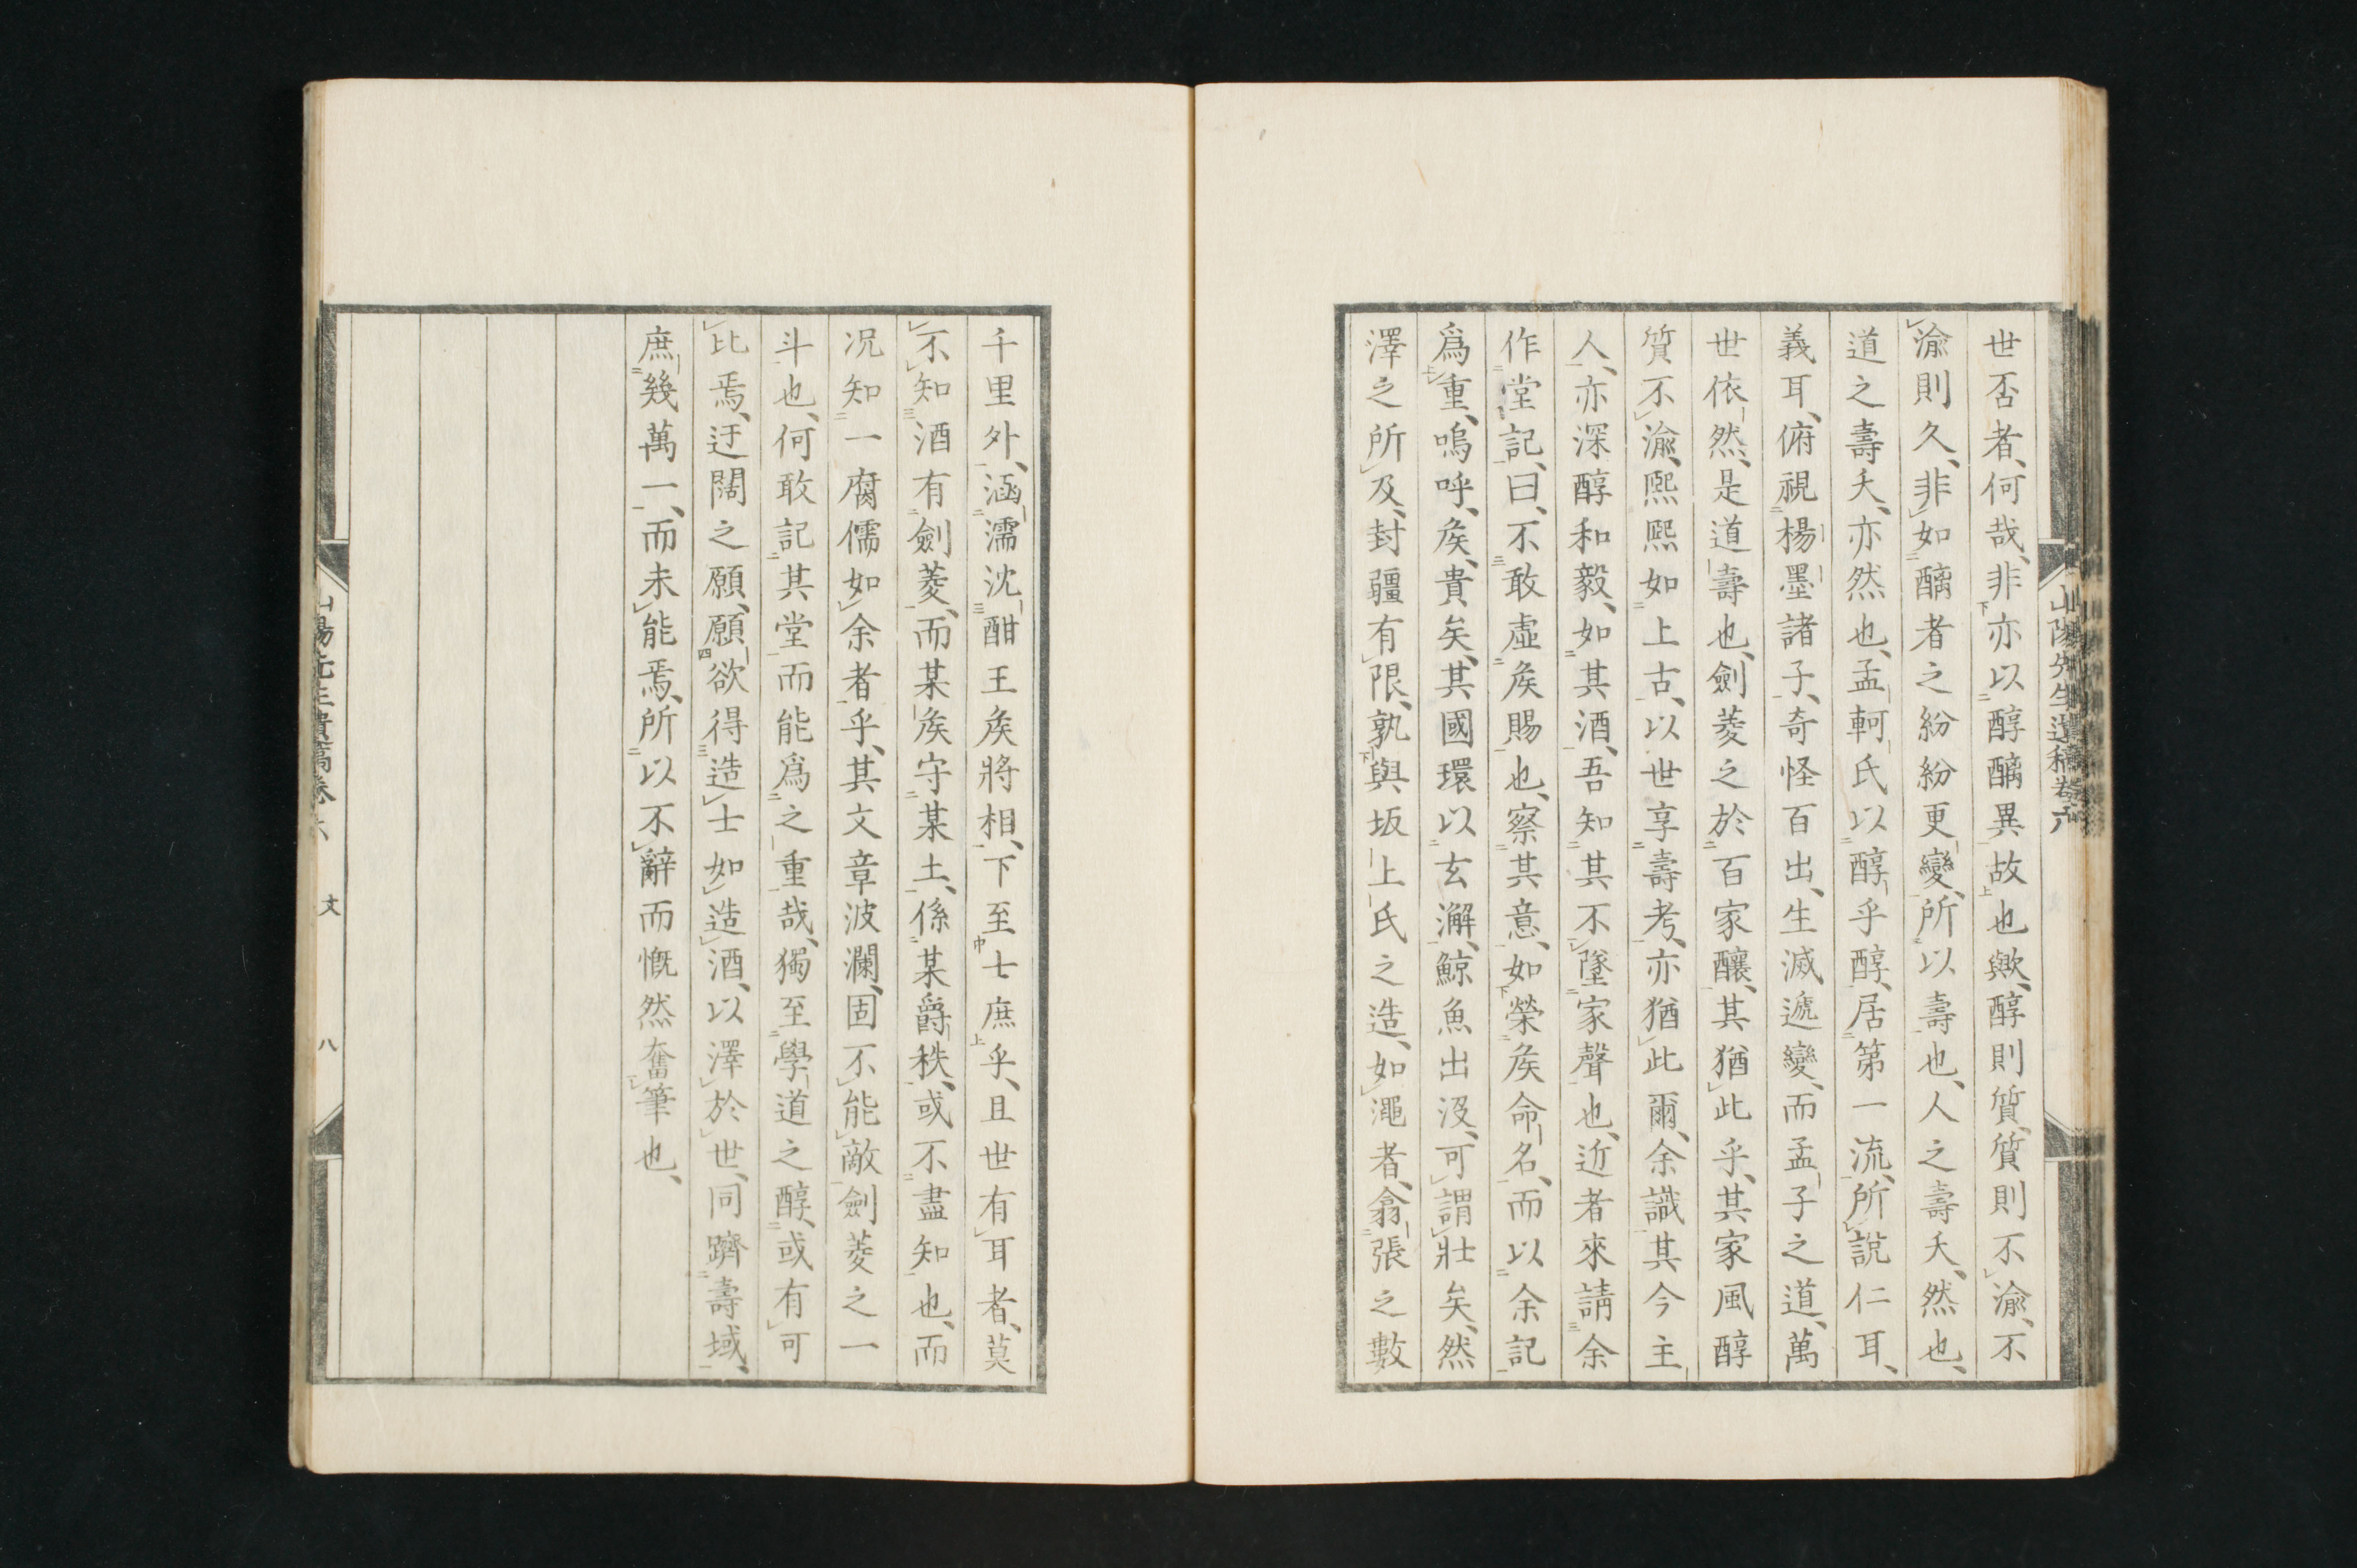 世否者、何哉、非亦以醇醨異故也歟、醇則質、質則不渝、不
渝則久、非如醨者之紛紛更變、所以壽也、人之壽夭、然也、
道之壽夭、亦然也、孟軻氏以醇乎醇、居第一流、所說仁耳、
義耳、俯視楊墨諸子、奇怪百出、生滅遞變、而孟子之道、萬
世依然、是道壽也、劍菱之於百家釀、其猶此乎、其家風醇
質不渝、熙熙如上古、以世享壽考、亦猶此爾、余識其今主
人、亦深醇和毅、如其酒、吾知其不墜家聲也、近者來請余
作堂記、曰、不敢虛矦賜也、察其意、如榮矦命名、而以余記
爲重、嗚呼、矦、貴矣、其國環以玄瀣、鯨魚出沒、可謂壯矣、然
澤之所及、封疆有限、孰與坂上氏之造、如澠者、翕張之數
千里外、涵濡沈酣王矦將相、下至士庶乎、且世有耳者、莫
不知酒有劍菱、而某矦守某土、係某爵秩、或不盡知也、而
況知一腐儒如余者乎、其文章波瀾、固不能敵劍菱之一
斗也、何敢記其堂而能爲之重哉、獨至學道之醇、或有可
比焉、迂闊之願、願欲得造士如造酒、以澤於世、同躋壽域、
庶幾萬一、而未能焉、所以不辭而慨然奮筆也、
山陽先生遺稿卷六
文
八